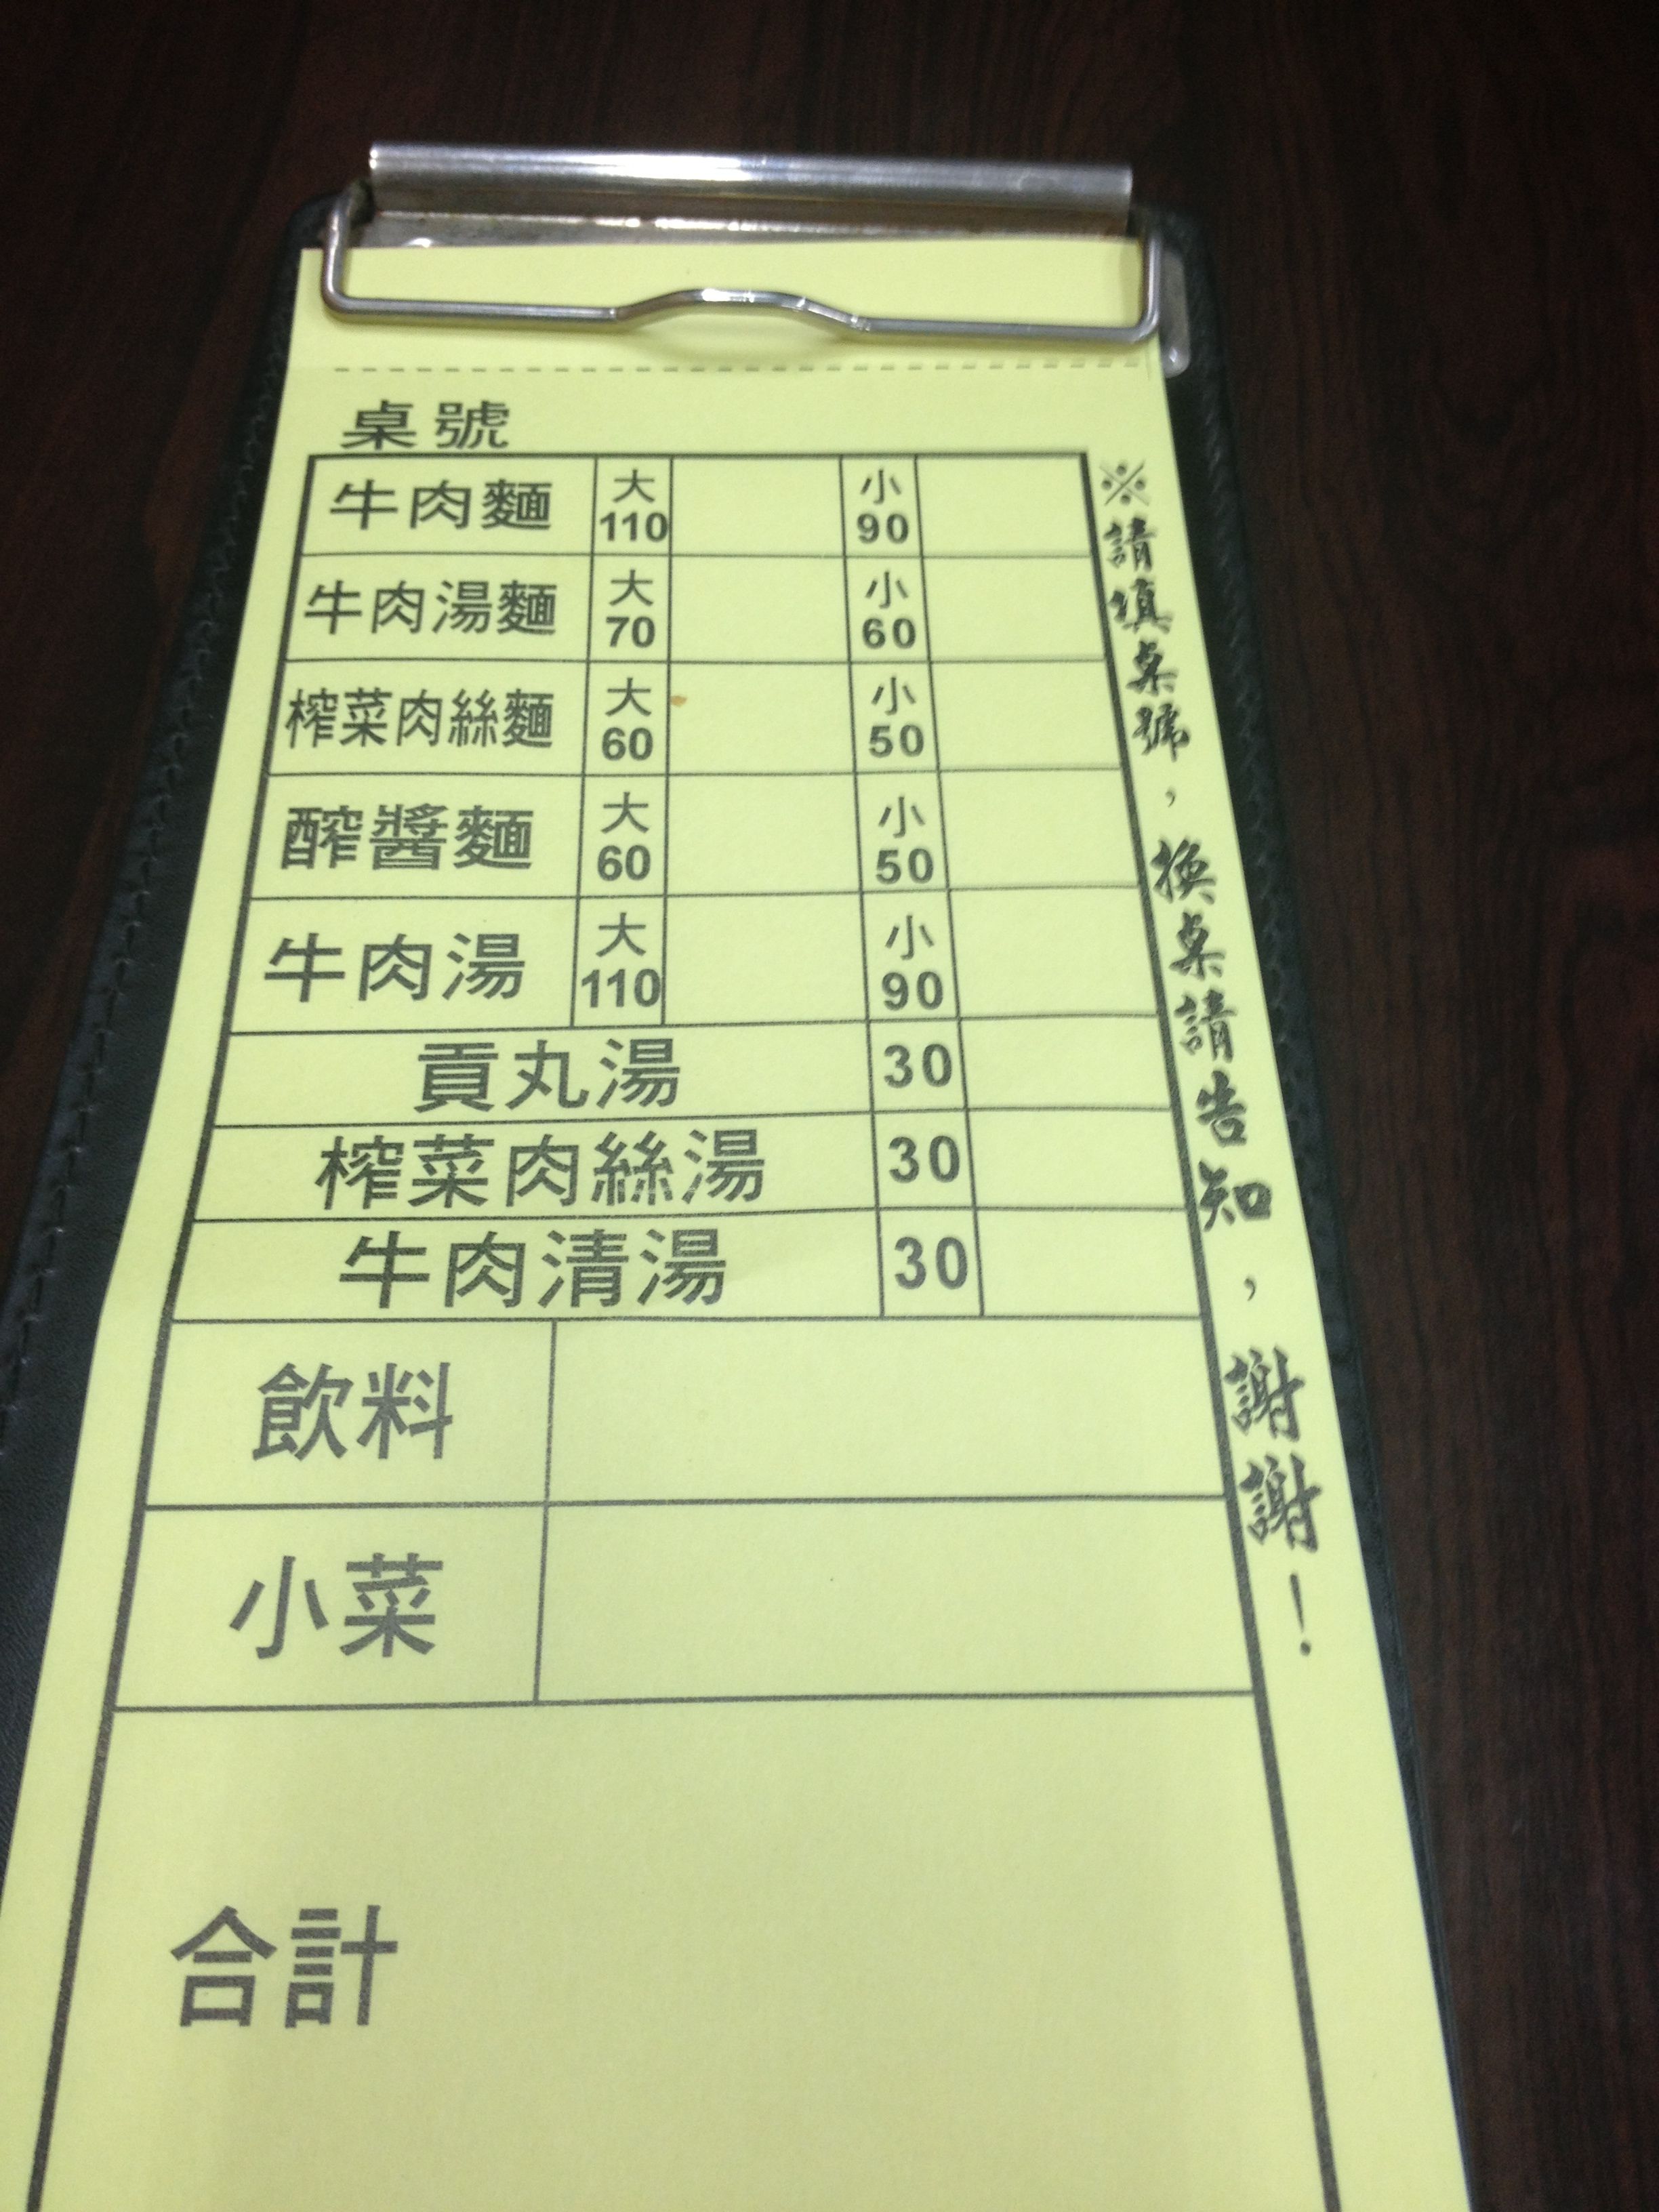 桌號
牛肉麵 大 110 小 90
牛肉湯麵 大 70 小 60
榨菜肉絲麵 大 60 小 50
醡醬麵 大 60 小 50
牛肉湯 大 110 小 90
貢丸湯 30
榨菜肉絲湯 30
牛肉清湯 30
飲料
小菜
合計
※請填桌號，換桌請告知，謝謝！